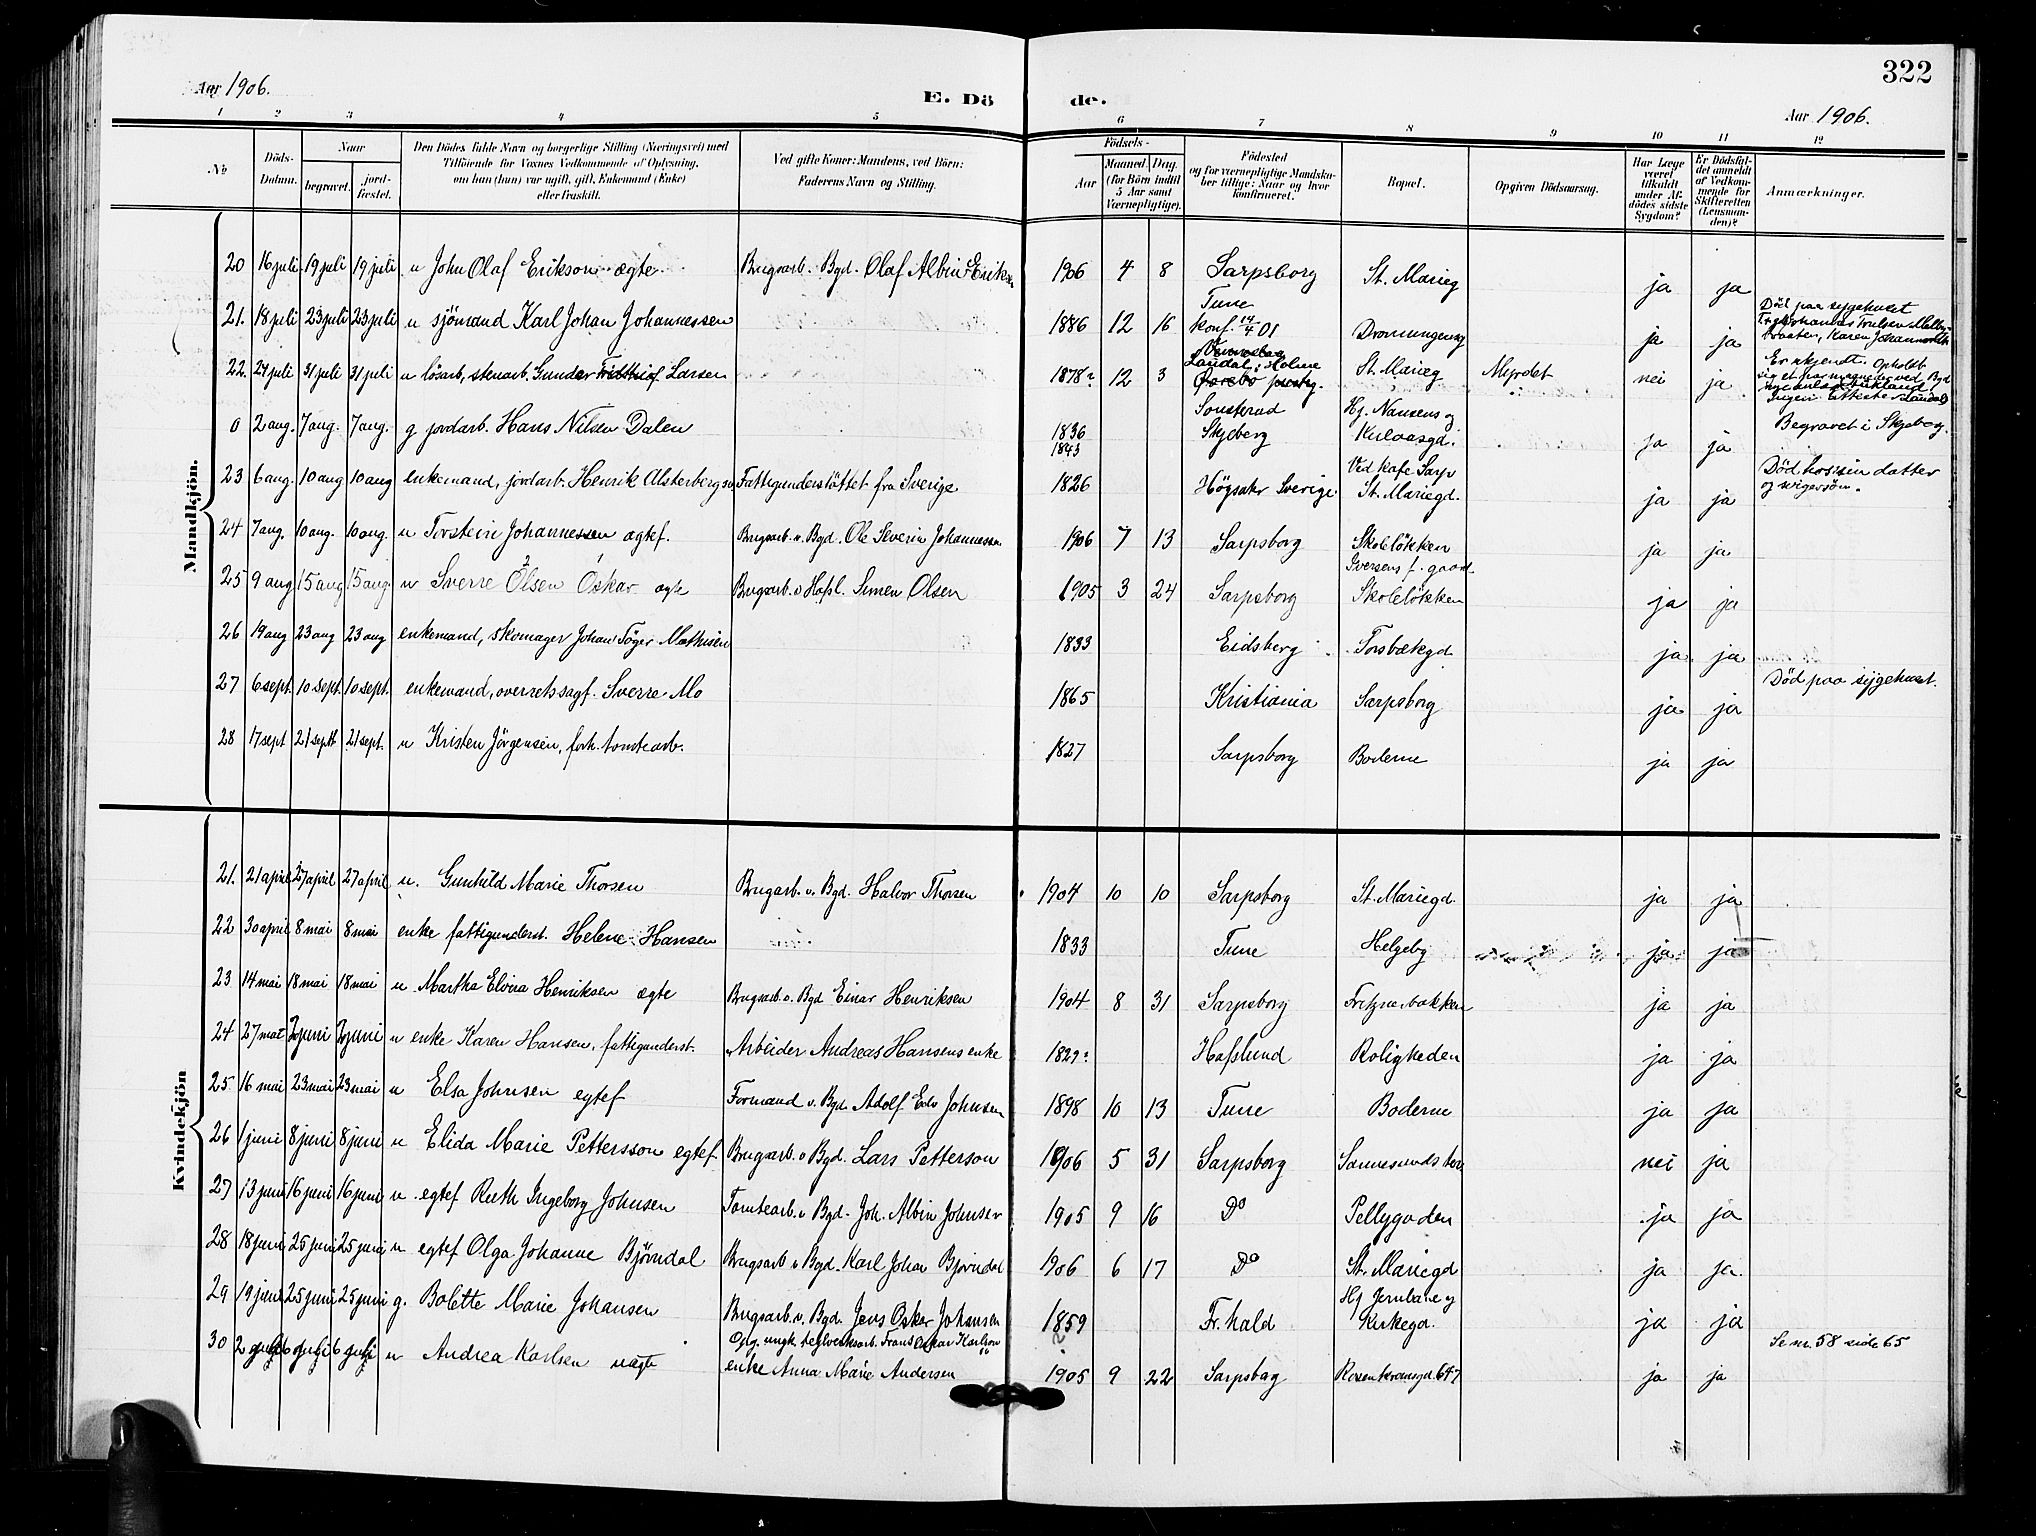 322
Aar 1906.
E. Dö de.
Aar 1906.
1 2 3 4 5 6 7 8 9 10 11 12
No
Döds-Datum.
Naar
begravet.
jord-fæstet.
Den Dödes fulde Navn og borgerlige Stilling (Næringsvei) med
Tilföiende for Voxnes Vedkommende af Oplysning,
om han (hun) var ugift, gift, Enkemand (Enke)
eller fraskilt.
Ved gifte Koner: Mandens, ved Börn:
Faderens Navn og Stilling.
Födsels-
Aar
Maaned Dag.
(for Börn indtil
5 Aar samt
Værnepligtige).
Födested
og for værnepligtige Mandska-
ber tillige: Naar og hvor
konfirmeret.
Bopæl.
Opgiven Dödsaarsag.
Har Læge
været
tilkaldt
under Af-
dödes sidste
Sygdom?
Er Dödsfal-
det anmeldt
af Vedkom-
mende for
Skifteretten
(Lensman-
den)?
Anmærkninger.
Mandkjön.
20 16 juli 19 juli 19 juli u John Olaf Erikson ægte Brugsarb. Bgd. Olaf Albin Eriks 1906 4 8 Sarpsborg St. Marieg ja ja
21. 18 juli 23 juli 23 juli u sjömand Karl Johan Johannessen 1886 12 16 Tune konf. 14/4 01 Dronningensg ja ja Död paa sygehuset
22. 24 juli 31 juli 31 juli u lösarb, stenarb. Gunder Larsen 1878? 12 3 Laudal i Holme St. Marieg Myrdet nei ja
0 2 aug. 7 aug. 7 aug. g jordarb. Hans Nilsen Dalen 1836 1843 Skjeberg Hj. Nansens og Kulaasgd. ja ja Begravet i Skjeberg.
23 6 aug. 10 aug 10 aug enkemand, jordarb. Henrik Alsterberg Fattigunderstöttet fra Sverige 1826 Högsäter Sverige Ved Kafe Sarp St. Mariegd. ja ja Död hos sin datter og svigersøn.
24 7 aug. 10 aug. 10 aug. u Torstein Johannessen ægtef. Brugsarb. v. Bgd. Ole Severin Johannessen 1906 7 13 Sarpsborg Skolelökken ja ja
25 9 aug 15 aug 15 aug u Sverre Olsen Oskar ægte Brugsarb. v Hafsl. Simen Olsen 1905 3 24 Sarpsborg Iversens f. gaard Skolelökken ja ja
26 19 aug 23 aug 23 aug enkemand, skomager Johan Töger Mathisen 1833 Eidsberg Torsbækgd ja ja
27 6 sept. 10 sept. 10 sept. enkemand, overretssagf. Sverre Mo 1865 Kristiania Sarpsborg ja ja Död paa sygehuset.
28 17 sept 21 sept 21 sept. u Kristen Jörgensen, forh. tomtearb. 1827 Sarpsborg Boderne ja ja
Kvindekjön
21. 21 april 27 april 27 april u. Gunhild Marie Thorsen Brugarb. v. Bgd. Halvor Thorsen 1904 10 10 Sarpsborg St. Mariegd. ja ja
22 30 april 8 mai 8 mai enke fattigunderst. Helene Hansen 1833 Tune Helgeby ja ja
23 14 mai 18 mai 18 mai u Martha Elvina Henriksen ægte Brugsarb. v. Bgd Einar Henriksen 1904 8 31 Sarpsborg Fritznerbakken ja ja
24 27 mai 2 juni 2 juni u enke Karen Hansen, fattigunderst. Arbeider Andreas Hansens enke 1829? Hafslund Roligheden ja ja
25 16 mai 23 mai 23 mai u Elsa Johnsen egtef Formand v. Bgd. Adolf Edv Johnsen 1898 10 13 Tune Boderne ja ja
26 1 juni 8 juni 8 juni u Elida Marie Pettersson egtef Brugsarb. v Bgd. Lars Petterson 1906 5 31 Sarpsborg Sannesunds ja nei ja
27 13 juni 16 juni 16 juni u egtef Ruth Ingeborg Johnsen Tomtearb. v Bgd. Joh. Albin Johnsen 1905 9 16 Do Pellygaden ja ja
28 18 juni 25 juni 25 juni u egtef Olga Johanne Björndal Brugsarb v Bgd. Karl Johan Bjorndal 1906 6 17 Do St. Mariegd ja ja.
29 19 juni 25 juni 25 juni g. Bolette Marie Johansen Brugsarb. v. Bgd. Jens Oskar Johansen 1859 ? Fr. hald Hj Jernbane og Kirkegd. ja ja
30 2 juli 6 juli 6 juli u Andrea Karlsen uægte Opg. ungk. teglverksarb. Frans Oskar Karlson enke Anna Marie Andersen 1905 9 22 Sarpsborg Rosenkransgd. 647 ja ja Se nr. 58 side 65